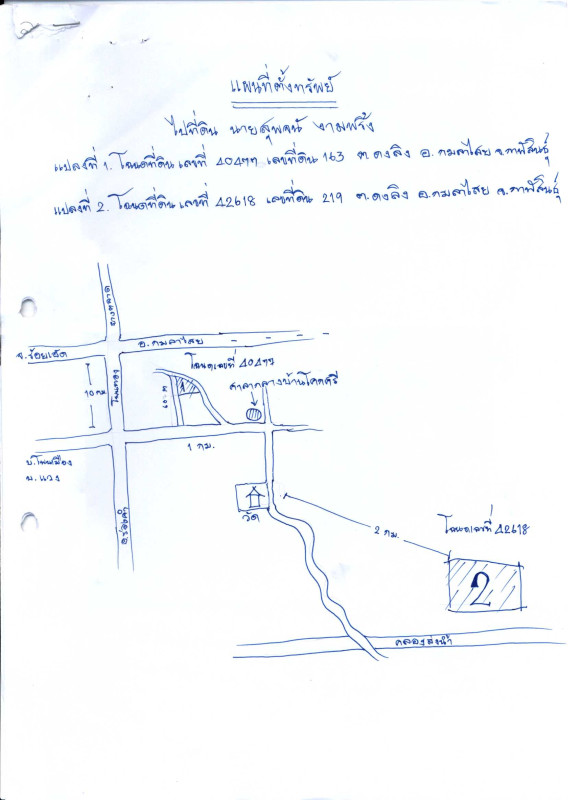 แผนที่ตั้งทรัพย์
ไปที่ดิน นายสุพจน์
แปลงที่ 1. โฉนดที่ดินเลขที่ 40477 เลขที่ดิน 163 ต.ดงลิง อ.กมลาไสย จ.กาฬสินธุ์
แปลงที่ 2. โฉนดที่ดินเลขที่ 42618 เลขที่ดิน 219 ต.ดงลิง อ.กมลาไสย จ.กาฬสินธุ์
ยางตลาด
จ.ร้อยเอ็ด
อ.กมลาไสย
โฉนดเลขที่ 40477
ศาลากลางบ้านโคกศรี
10 กม
1
60 ม
1 กม.
บ.โนนเมือง
บ.แวง
อ.ร่องคำ
วัด
2 กม.
โฉนดเลขที่ 42618
2
คลองส่งน้ำ